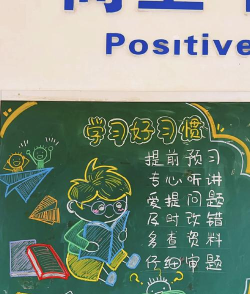 Positive
学习好习惯
提前预习
专心听讲
爱提问题
及时改错
多查资料
仔细审题